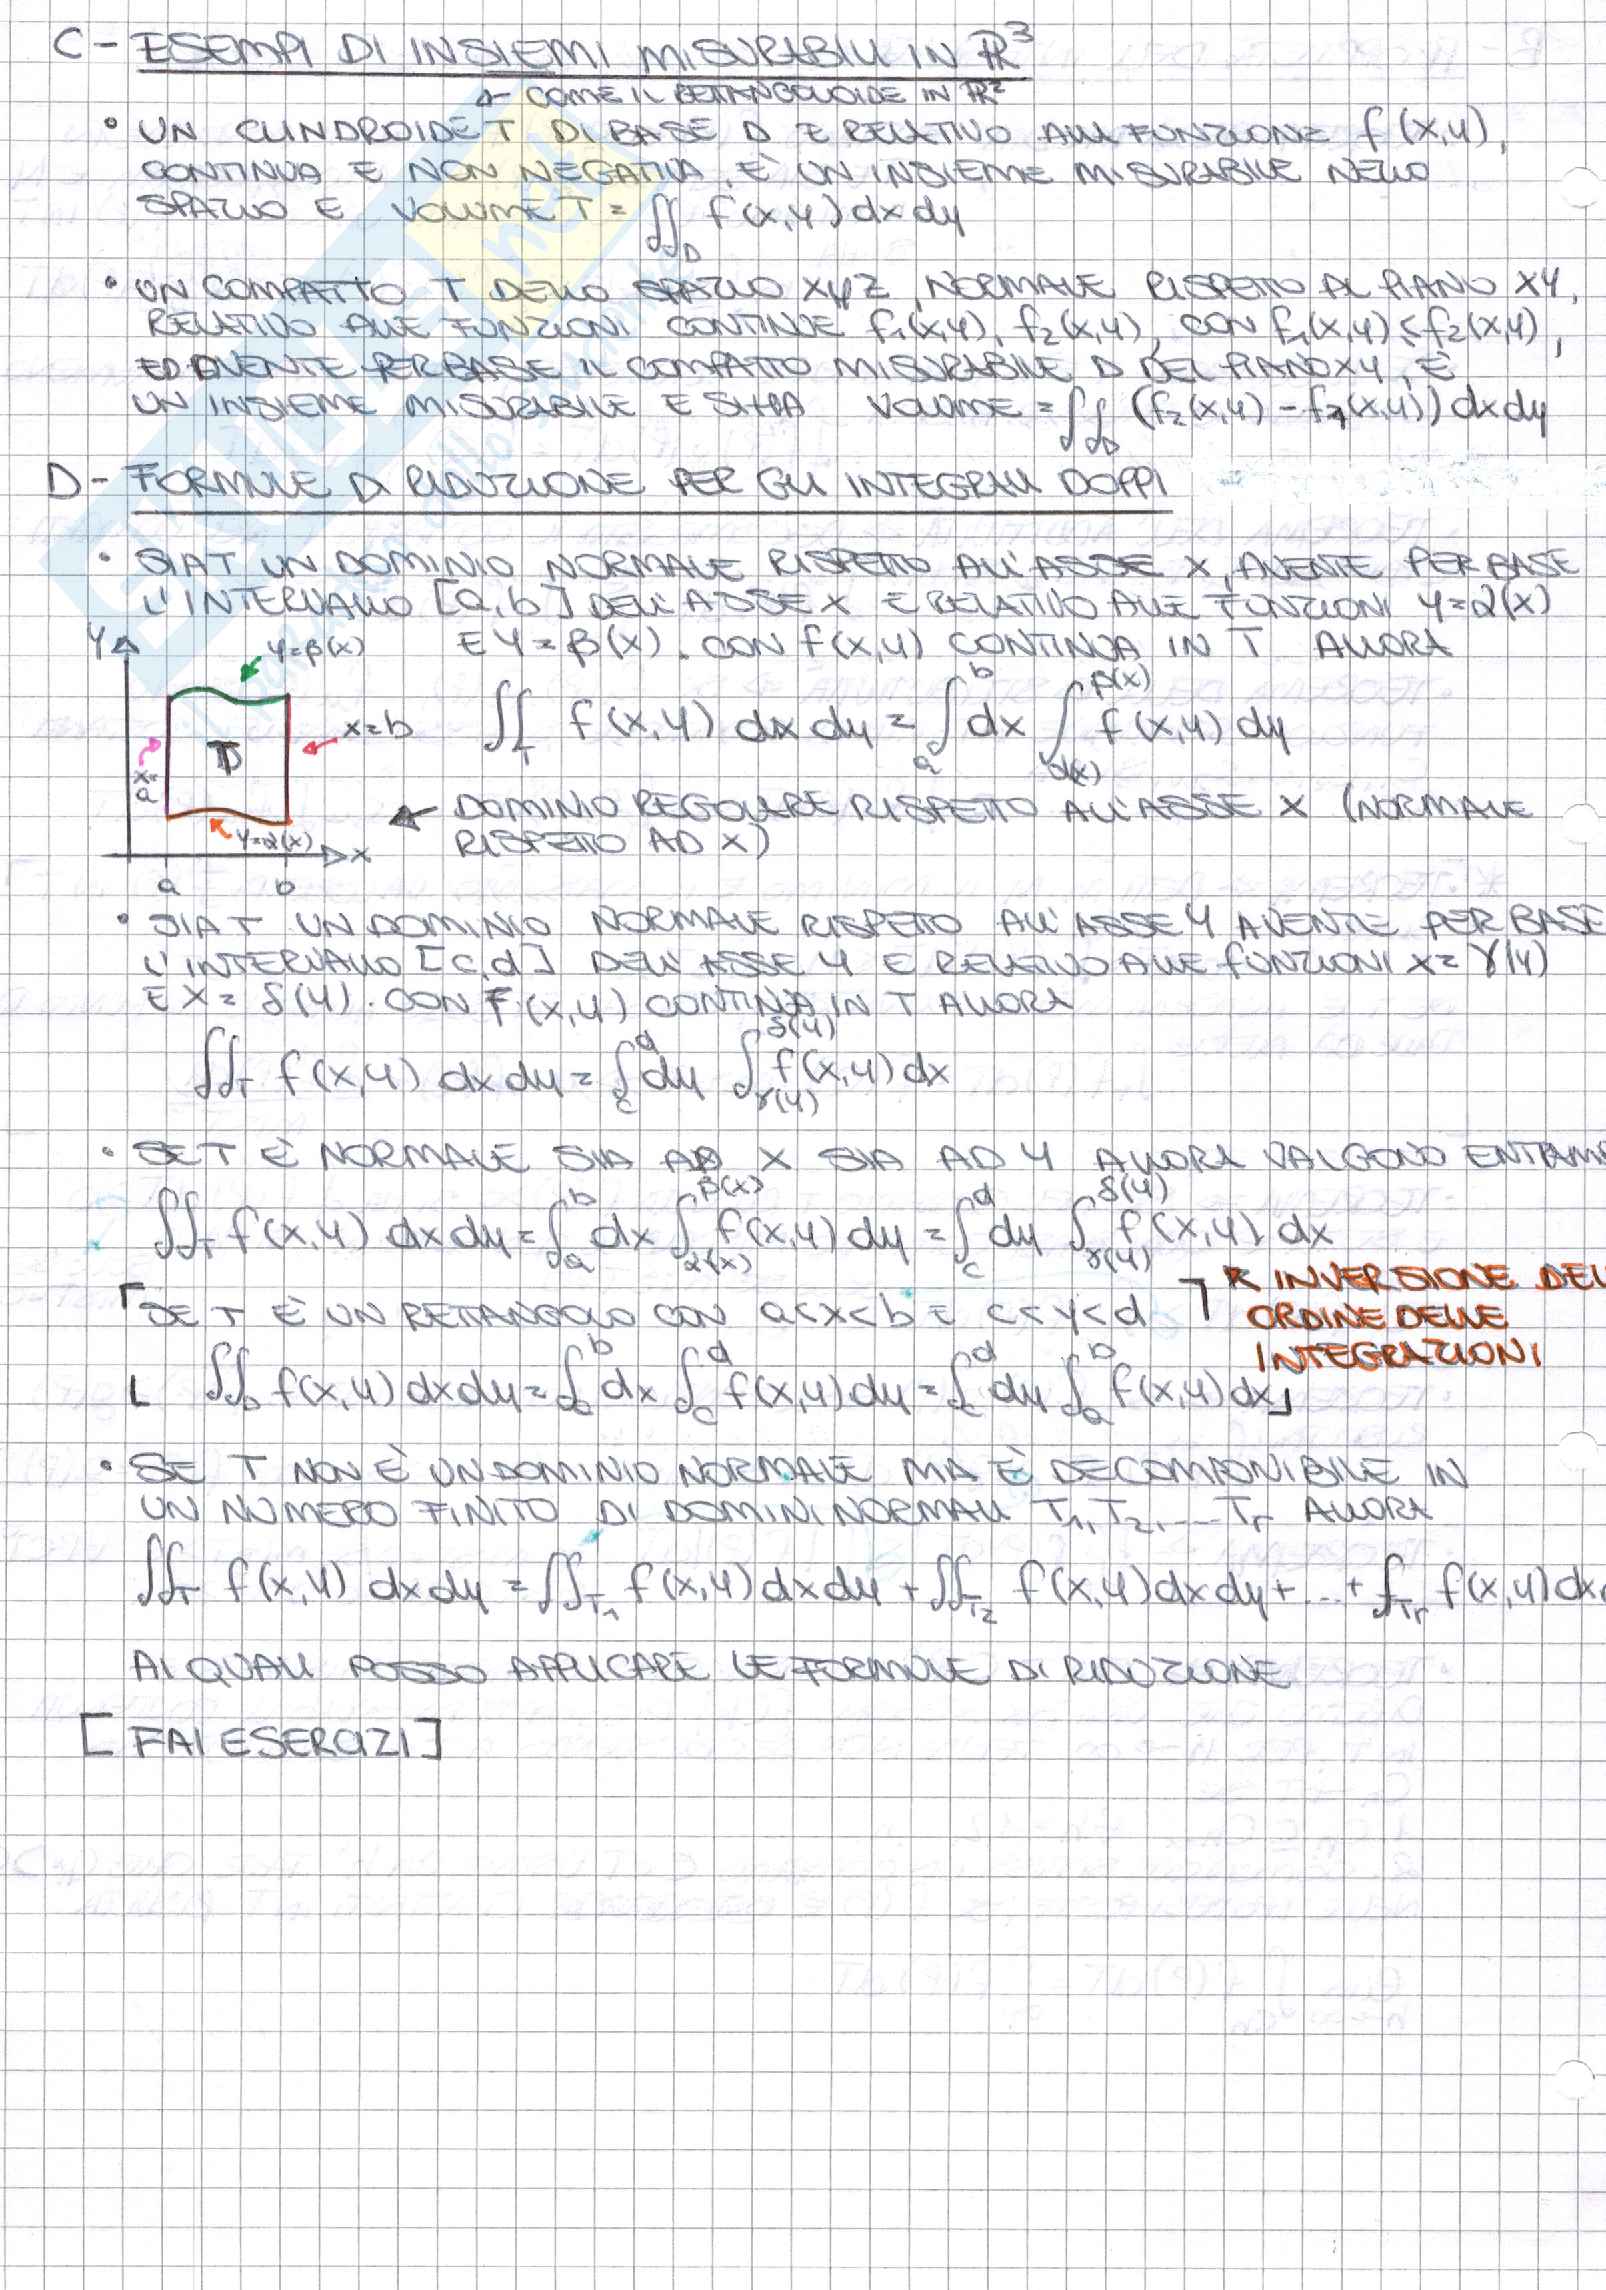 C - ESEMPI DI INSIEMI MISURABILI IN ℝ³
← COME IL RETTANGOLOIDE IN ℝ²
• UN CILINDROIDE T DI BASE D E RELATIVO ALLA FUNZIONE f(x,y),
CONTINUA E NON NEGATIVA, È UN INSIEME MISURABILE NELLO
SPAZIO E VOLUME T = ∬_D f(x,y) dx dy
• UN COMPATTO T DELLO SPAZIO XYZ, NORMALE RISPETTO AL PIANO XY,
RELATIVO ALLE FUNZIONI CONTINUE f₁(x,y), f₂(x,y), CON f₁(x,y) ≤ f₂(x,y),
ED AVENTE PER BASE IL COMPATTO MISURABILE D DEL PIANO XY, È
UN INSIEME MISURABILE E SI HA VOLUME = ∬_D (f₂(x,y) - f₁(x,y)) dx dy
D - FORMULE DI RIDUZIONE PER GLI INTEGRALI DOPPI
• SIA T UN DOMINIO NORMALE RISPETTO ALL'ASSE X, AVENTE PER BASE
L'INTERVALLO [a,b] DELL'ASSE X E RELATIVO ALLE FUNZIONI y=α(x)
E y=β(x). CON f(x,y) CONTINUA IN T ALLORA
y
y=β(x)
x=b
x=a
T
y=α(x)
x
a b
∬_T f(x,y) dx dy = ∫_a^b dx ∫_α(x)^β(x) f(x,y) dy
← DOMINIO REGOLARE RISPETTO ALL'ASSE X (NORMALE
RISPETTO AD X)
• SIA T UN DOMINIO NORMALE RISPETTO ALL'ASSE Y AVENTE PER BASE
L'INTERVALLO [c,d] DELL'ASSE Y E RELATIVO ALLE FUNZIONI x=γ(y)
E x=δ(y). CON f(x,y) CONTINUA IN T ALLORA
∬_T f(x,y) dx dy = ∫_c^d dy ∫_γ(y)^δ(y) f(x,y) dx
• SE T È NORMALE SIA AD X SIA AD Y ALLORA VALGONO ENTRAMB
∬_T f(x,y) dx dy = ∫_a^b dx ∫_α(x)^β(x) f(x,y) dy = ∫_c^d dy ∫_γ(y)^δ(y) f(x,y) dx
SE T È UN RETTANGOLO CON a<x<b E c<y<d
INVERSIONE DELL
ORDINE DELLE
INTEGRAZIONI
∬_D f(x,y) dx dy = ∫_a^b dx ∫_c^d f(x,y) dy = ∫_c^d dy ∫_a^b f(x,y) dx
• SE T NON È UN DOMINIO NORMALE MA È DECOMPONIBILE IN
UN NUMERO FINITO DI DOMINI NORMALI T₁, T₂, ... Tr ALLORA
∬_T f(x,y) dx dy = ∬_T₁ f(x,y) dx dy + ∬_T₂ f(x,y) dx dy + ... + ∫_Tr f(x,y) dx
AI QUALI POSSO APPLICARE LE FORMULE DI RIDUZIONE
[FAI ESERCIZI]